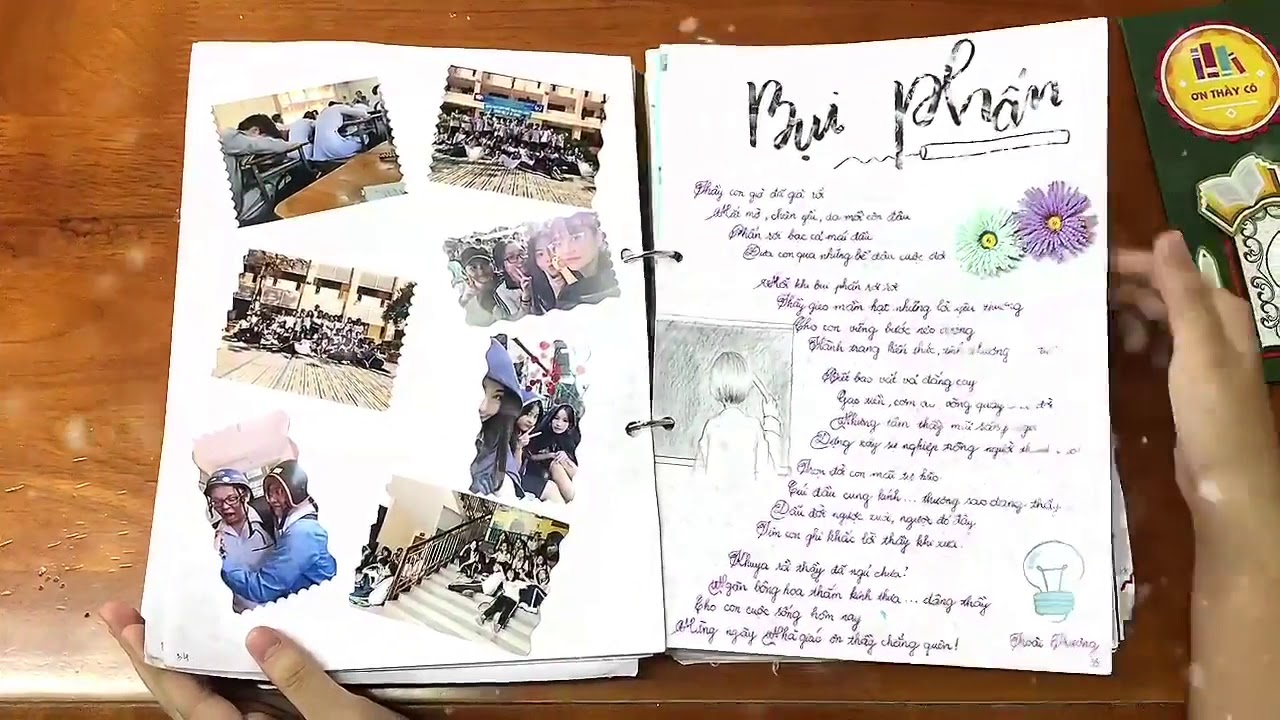 Bụi phấn
ƠN THẦY CÔ
Thầy con giờ đã già rồi
Mắt mờ, chân yếu, da mồi còn đâu
Phấn rơi bạc cả mái đầu
Đưa con qua những bể dâu cuộc đời
Mỗi khi bụi phấn rơi rơi
Thầy gieo mầm hạt những lời yêu thương
Cho con vững bước nẻo đường
Hành trang kiến thức, tình thương
Biết bao vất vả đắng cay
Gạo tiền, cơm áo vòng quay
Nhưng tâm thầy mãi sáng
Dựng xây sự nghiệp trồng người
Trọn đời con mãi tự hào
Cúi đầu cung kính... thương sao dáng thầy
Dẫu đời ngược xuôi, ngược đó đây
Tim con ghi khắc lời thầy khi xưa.
Khuya rồi thầy đã ngủ chưa?
Ngàn bông hoa thắm kính thưa... dâng thầy
Cho con cuộc sống hôm nay
Mừng ngày Nhà giáo ơn thầy chẳng quên!
Hoài Thương